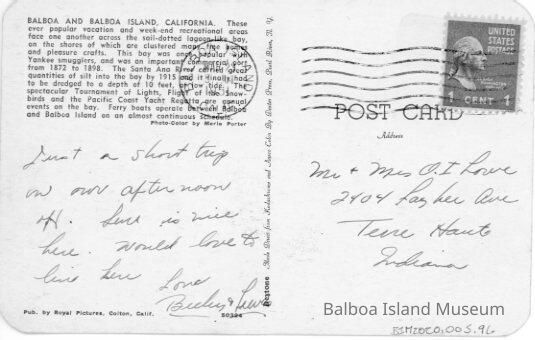 BALBOA AND BALBOA ISLAND, CALIFORNIA. These
ever popular vacation and week-end recreational areas
face one another across the sail-dotted lagoon-like bay,
on the shores of which are clustered many fine homes
and pleasure crafts. This bay was once popular with
Yankee smugglers, and was an important commercial port
from 1872 to 1898. The Santa Ana River carried great
quantities of silt into the bay by 1915 and it finally had
to be dredged to a depth of 10 feet, at low tide. The
spectacular Tournament of Lights, Flight of the Snow-
birds and the Pacific Coast Yacht Regatta are annual
events on the bay. Ferry boats operate between Balboa
and Balboa Island on an almost continuous schedule.
Photo-Color by Merle Porter
Just a short trip
on our afternoon
off. Sure is nice
here. Would love to
live here Love
Pub. by Royal Pictures, Colton, Calif. 50394
UNITED
STATES
POSTAGE
1 CENT 1
POST CARD
Address
Mr & Mrs O.I Lowe
2404 Ave
Terre Haute
Indiana
Balboa Island Museum